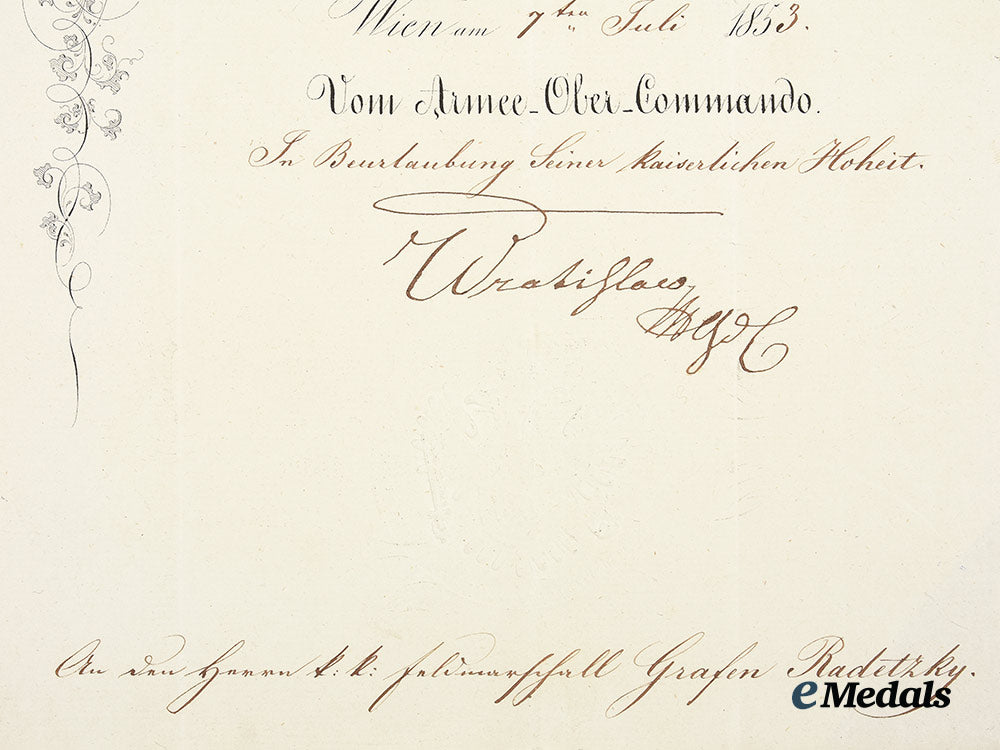 Wien am 7ten Juli 1853.
Vom Armee-Ober-Commando.
In Beurlaubung Seiner kaiserlichen Hoheit.
Wratislaw
GdC
An den Herrn k: k: Feldmarschall Grafen Radetzky.
eMedals